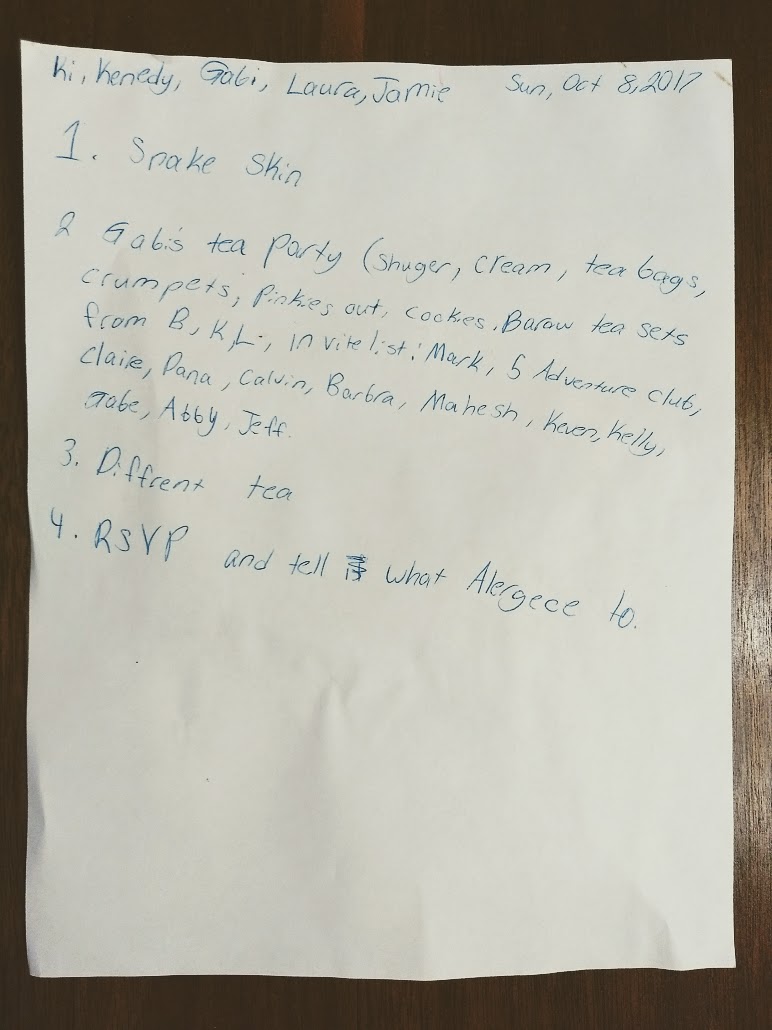 Ki, Kenedy, Gabi, Laura, Jamie Sun, Oct 8, 2017
1. Snake Skin
2 Gabi's tea Party (Shuger, cream, tea bags,
crumpets, Pinkies out, cockies, Baraw tea sets
from B, K, L., in vite list: Mark, 5 Adventure club,
Claire, Dana, Calvin, Barbra, Mahesh, Keven, Kelly,
Gabe, Abby, Jeff.
3. Diffrent tea
4. RSVP and tell what Alergece to.